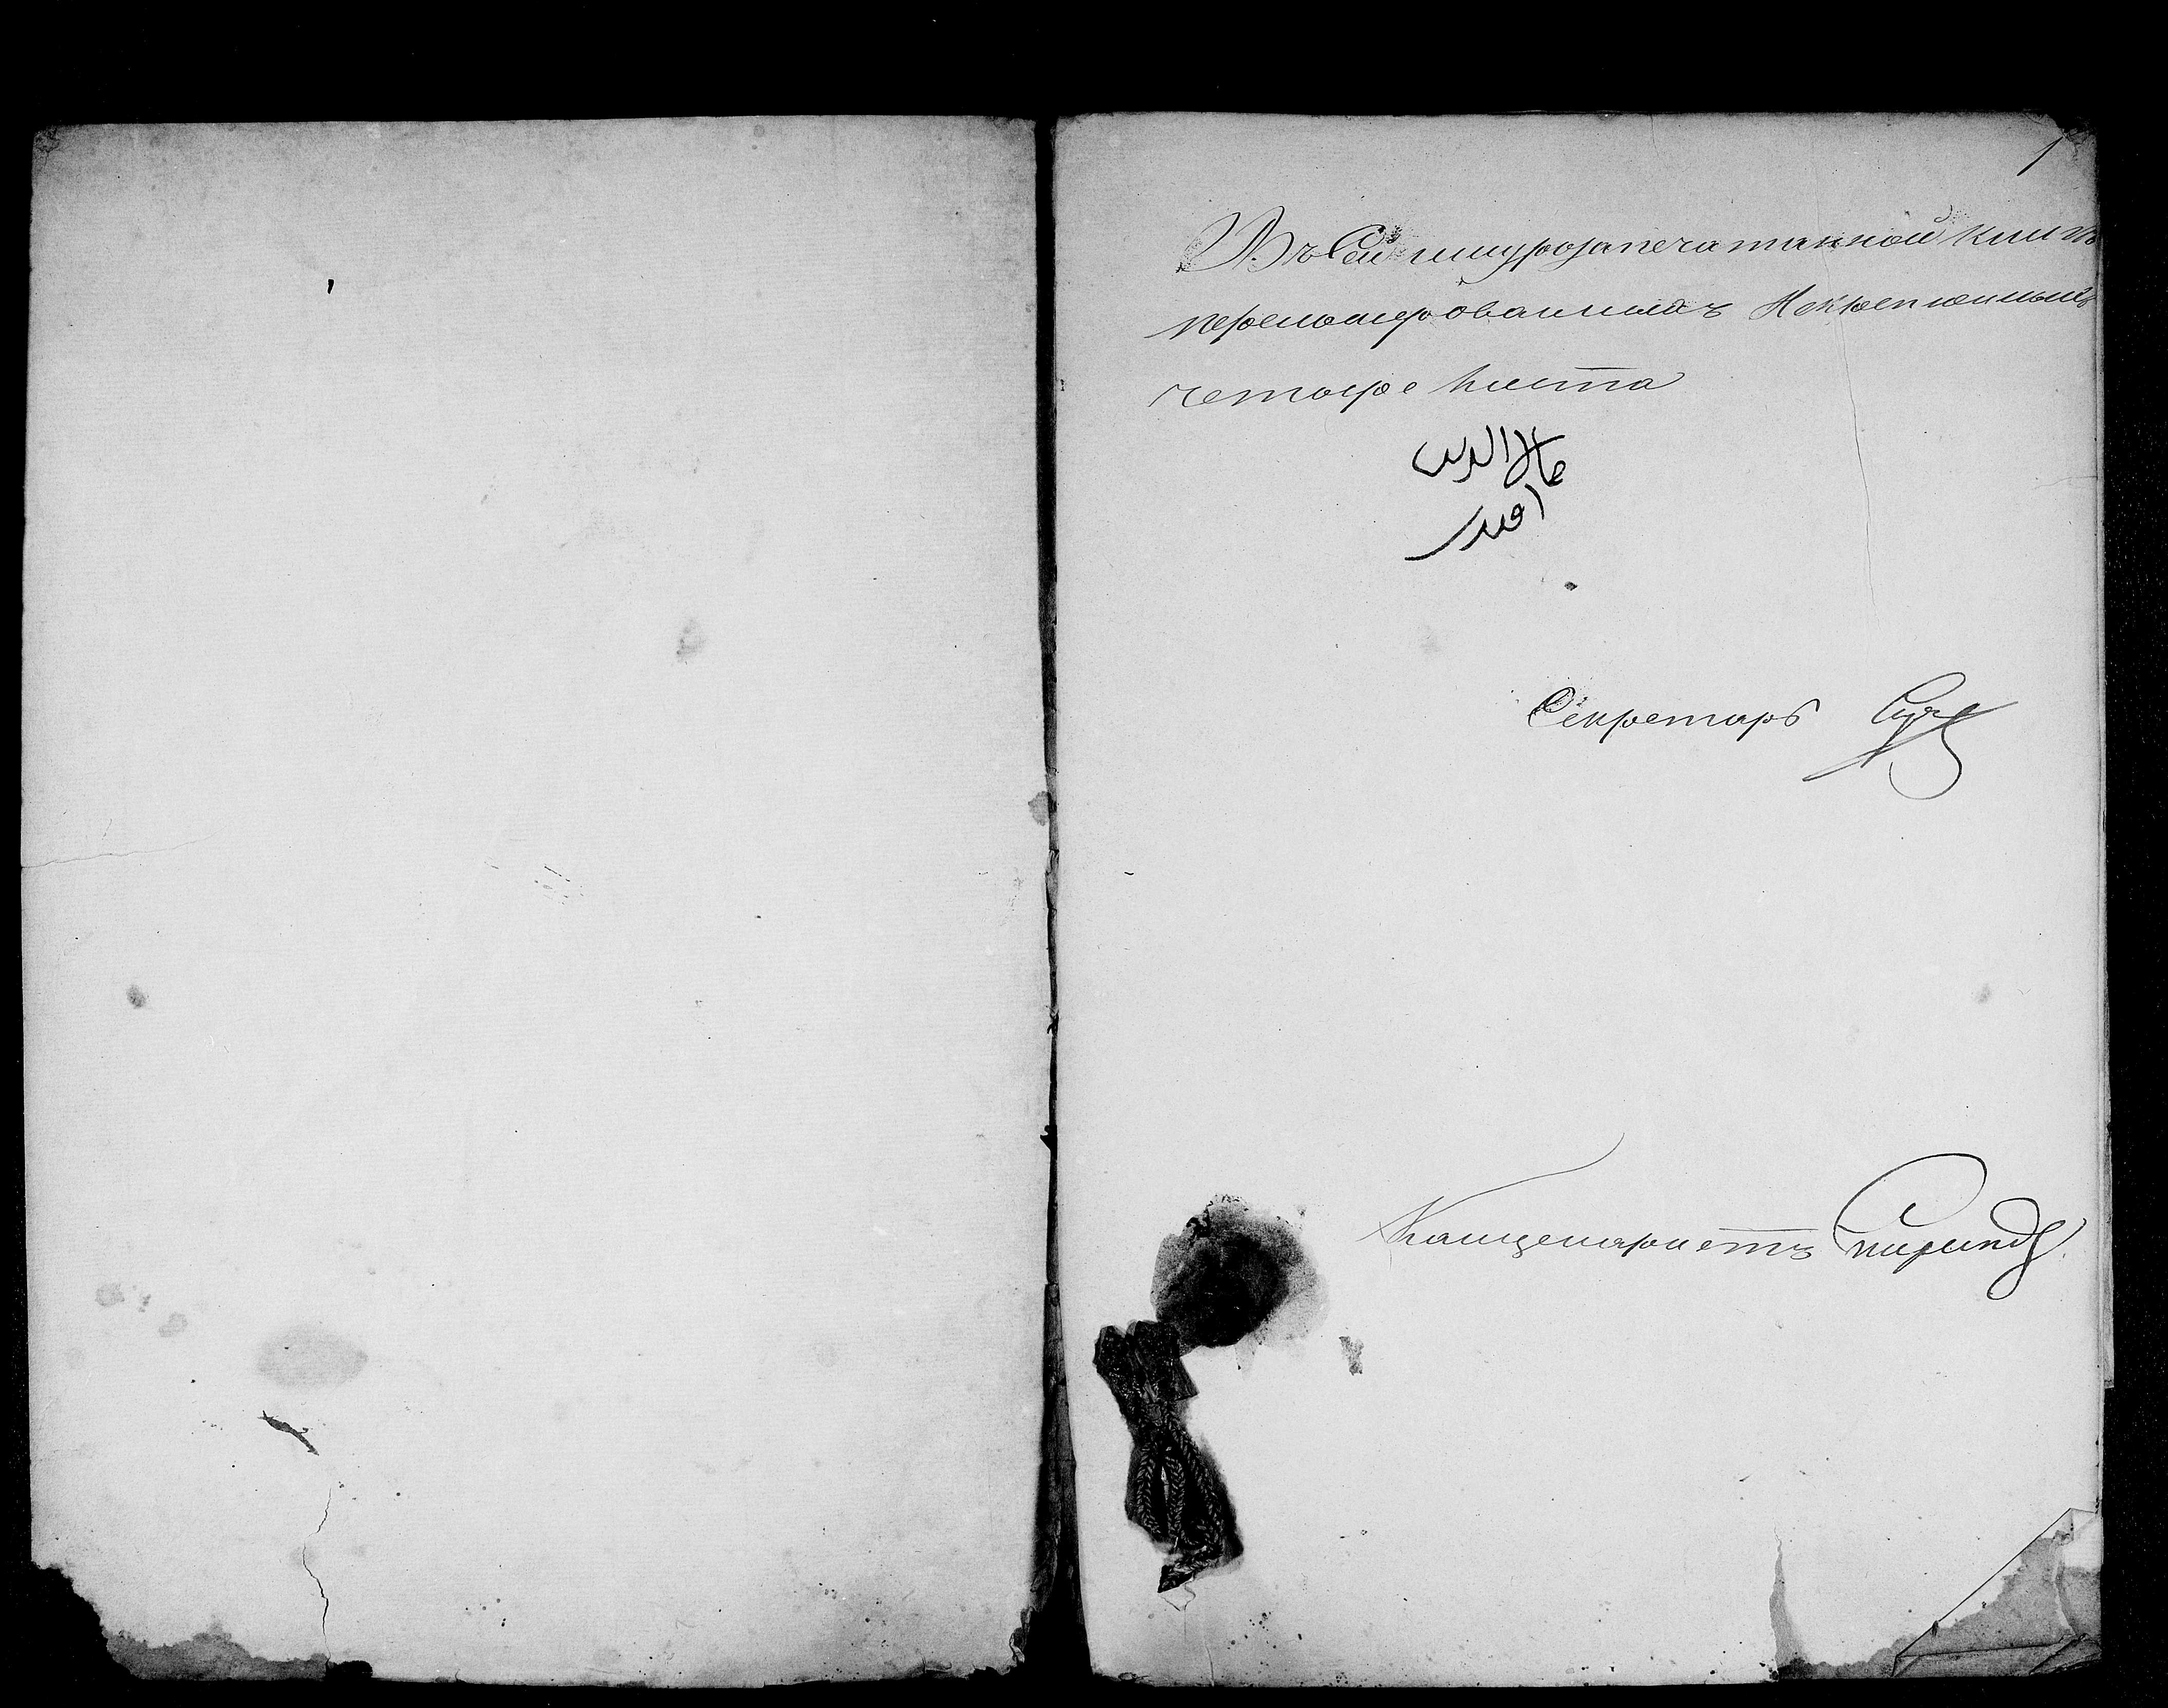 Въ Сей шнурозапечатанной книгѣ
перенамерованныхъ И скрепленныхъ
четыре листа
Секретарь
Канцеляристъ